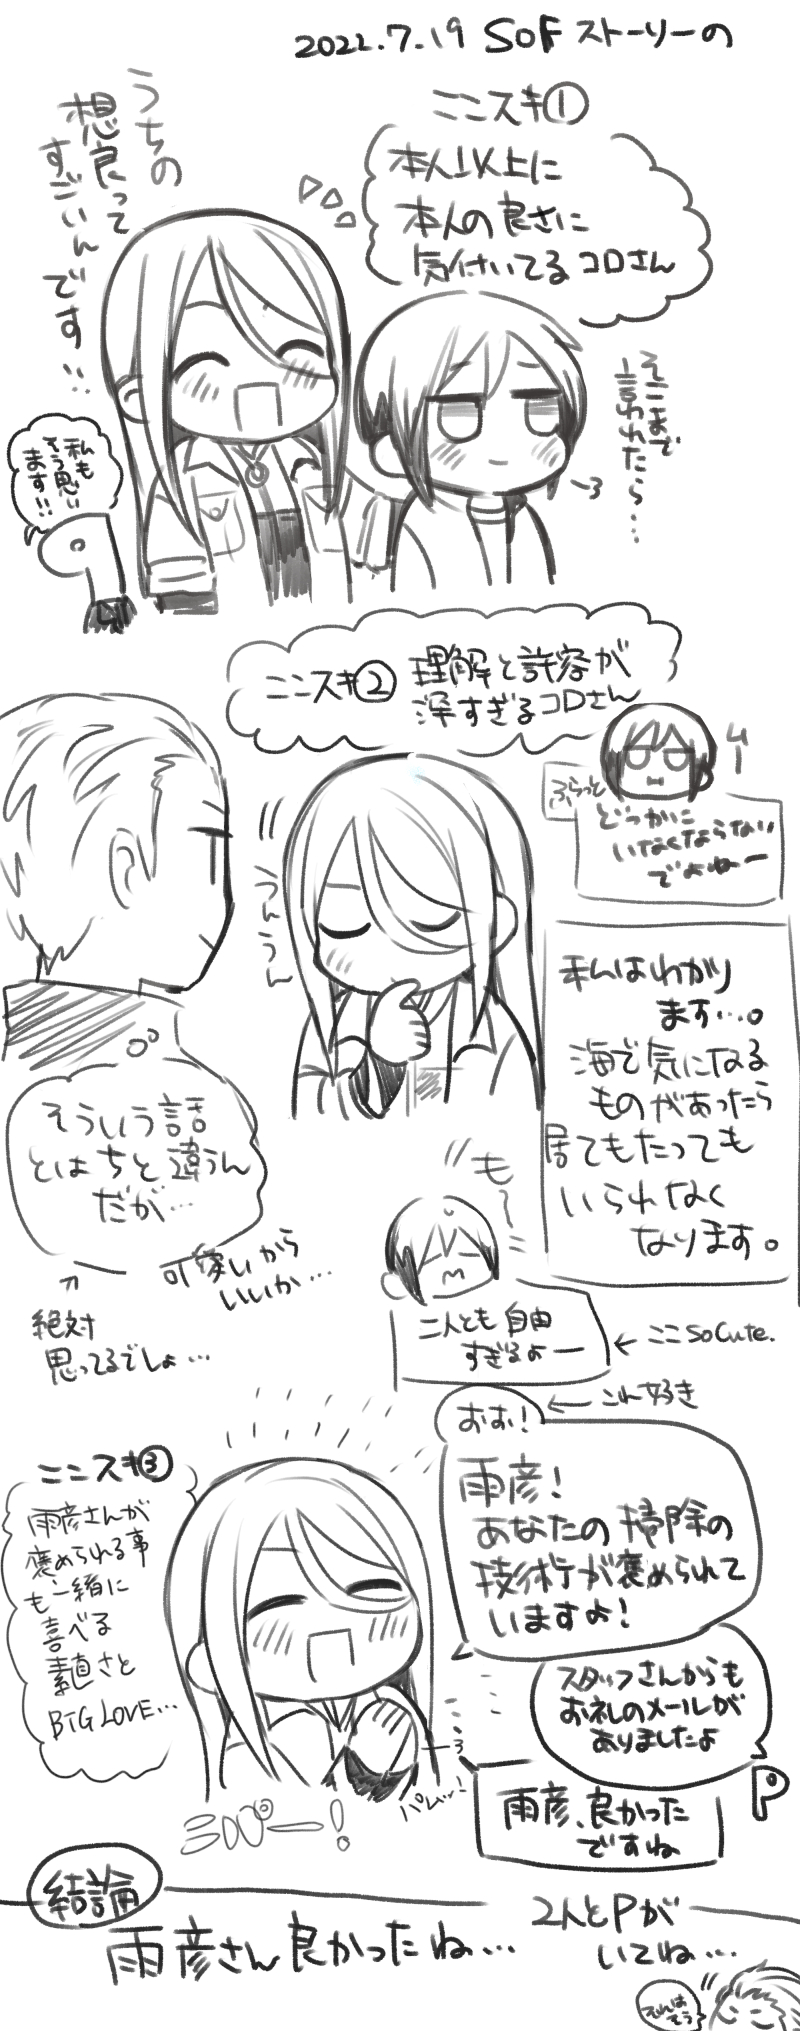 2022.7.19 SOF ストーリーの
ここスキ①
本人以上に
本人の良さに
気付いてるコロさん
うちの
想良って
すごいんです!!
私も
そう思い
ます!!
そこまで
言われたら…
ここスキ② 理解と許容が
深すぎるコロさん
ムー
ふらっと
どっかに
いなくならない
でよねー
うんうん
私はわかり
ます…。
海で気になる
ものがあったら
居てもたっても
いられなく
なります。
そういう話
とはちと違うん
だが…
可愛いから
いいか…
絶対
思ってるでしょ…
も〜
二人とも自由
すぎるよー
←ここ So Cute.
おお!
←これ好き
雨彦!
あなたの掃除の
技術が褒められて
いますよ!
ここスキ③
雨彦さんが
褒められる事
も一緒に
喜べる
素直さと
BIG LOVE…
スタッフさんからも
お礼のメールが
ありましたよ
P
雨彦、良かった
ですね
結論
雨彦さん良かったね…
2人とPが
いてね…
それは
そう